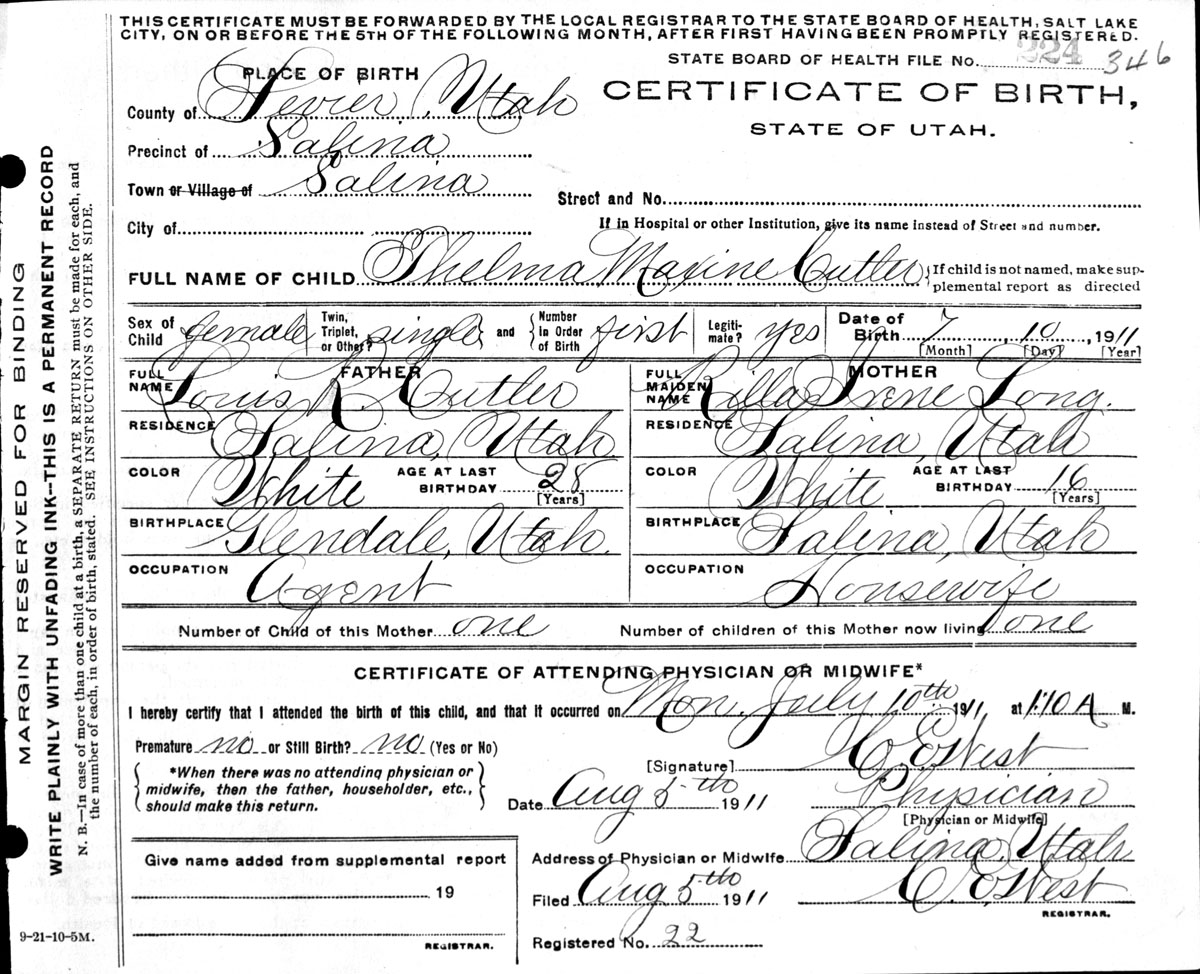 THIS CERTIFICATE MUST BE FORWARDED BY THE LOCAL REGISTRAR TO THE STATE BOARD OF HEALTH, SALT LAKE
CITY, ON OR BEFORE THE 5TH OF THE FOLLOWING MONTH, AFTER FIRST HAVING BEEN PROMPTLY REGISTERED.
STATE BOARD OF HEALTH FILE No. 224 346
PLACE OF BIRTH
CERTIFICATE OF BIRTH,
County of Sevier, Utah
STATE OF UTAH.
Precinct of Salina
Town or Village of Salina
Street and No.
City of
If in Hospital or other Institution, give its name instead of Street and number.
FULL NAME OF CHILD Thelma Maxine Cutler {If child is not named, make sup-
plemental report as directed
Sex of Child female Twin, Triplet, or Other? single and {Number in Order of Birth first Legiti-mate? yes Date of Birth 7, 10, 1911
[Month] [Day] [Year]
FATHER
MOTHER
FULL NAME Louis R. Cutler
FULL MAIDEN NAME Rilla Irene Long.
RESIDENCE Salina, Utah
RESIDENCE Salina, Utah
COLOR White AGE AT LAST BIRTHDAY 28 [Years]
COLOR White AGE AT LAST BIRTHDAY 16 [Years]
BIRTHPLACE Glendale, Utah.
BIRTHPLACE Salina, Utah
OCCUPATION Agent
OCCUPATION Housewife
Number of Child of this Mother one Number of children of this Mother now living one
CERTIFICATE OF ATTENDING PHYSICIAN OR MIDWIFE*
I hereby certify that I attended the birth of this child, and that it occurred on Mon. July 10th 1911 at 1:10 A M.
Premature no or Still Birth? no (Yes or No)
[Signature] C. E. West
{*When there was no attending physician or
midwife, then the father, householder, etc.,
should make this return.}
Date Aug 5th 1911 Physician
[Physician or Midwife]
Give name added from supplemental report
Address of Physician or Midwife Salina, Utah
19
Filed Aug 5th 1911 C. E. West
REGISTRAR.
REGISTRAR.
Registered No. 22
9-21-10-5M.
MARGIN RESERVED FOR BINDING
WRITE PLAINLY WITH UNFADING INK—THIS IS A PERMANENT RECORD
N. B.—In case of more than one child at a birth, a SEPARATE RETURN must be made for each, and
the number of each, in order of birth, stated. SEE INSTRUCTIONS ON OTHER SIDE.